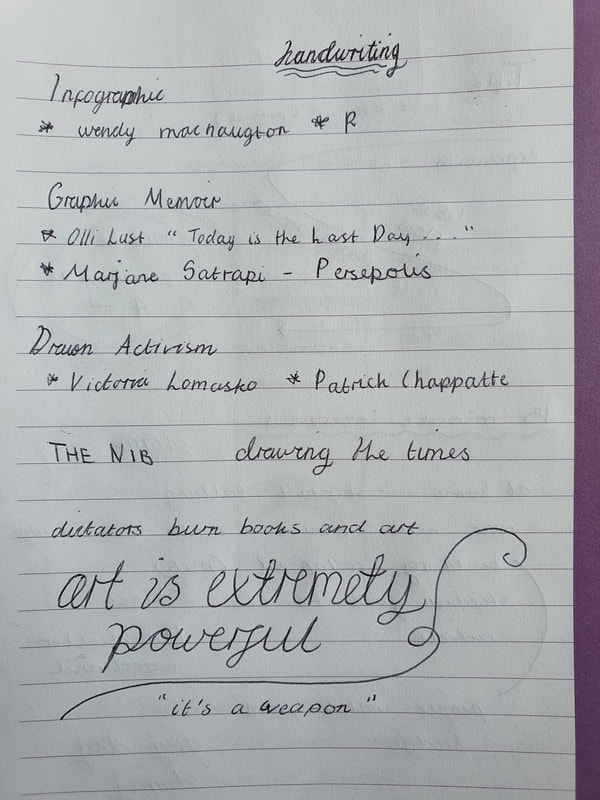 handwriting
Infographic
* wendy macnaugton * R
Graphic Memoir
* Olli Lust "Today is the Last Day ..."
* Marjane Satrapi - Persepolis
Drawn Activism
* Victoria Lomasko * Patrick Chappatte
THE NIB drawing the times
dictators burn books and art
art is extremely
powerful
"it's a weapon"